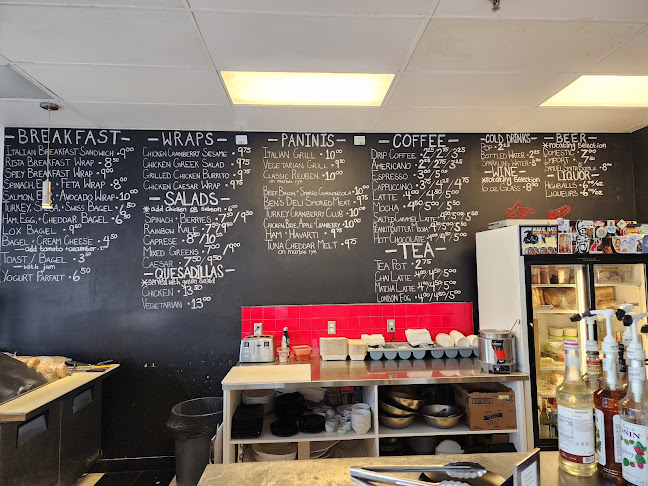 - BREAKFAST -
ITALIAN BREAKFAST SANDWICH • 9.00
RISTA BREAKFAST WRAP • 8.50
SPICY BREAKFAST WRAP • 9.00
SPINACH + FETA WRAP • 8.00
SALMON + AVOCADO WRAP 10.00
TURKEY, SAUSA, SWISS BAGEL • 7.00
HAM, EGG, CHEDDAR BAGEL • 6.00
LOX BAGEL • 9.00
BAGEL + CREAM CHEESE • 4.50
add tomato + cucumber
TOAST / BAGEL • 3.50
with jam
YOGURT PARFAIT • 6.50
- WRAPS -
CHICKEN CRANBERRY SESAME • 9.75
CHICKEN GREEK SALAD • 9.75
GRILLED CHICKEN BURRITO • 9.75
CHICKEN CAESAR WRAP • 9.75
- SALADS -
* add chicken or salmon
SPINACH + BERRIES • 7.50/9.00
RAINBOW KALE
CAPRESE • 8.00/10.00
MIXED GREENS
CAESAR
- QUESADILLAS -
* served with green salad
CHICKEN • 13.50
VEGETARIAN • 13.00
- PANINIS -
ITALIAN GRILL • 10.00
VEGETARIAN GRILL • 9.75
CLASSIC REUBEN • 10.00
on marble rye
BEEF, BACON + SMOKED
BEN'S DELI SMOKED MEAT • 9.75
TURKEY CRANBERRY CLUB • 10.00
CHICKEN, BRIE, APPLE, CRANBERRY • 10.00
HAM + HAVARTI • 9.75
TUNA CHEDDAR MELT • 9.75
on marble rye
- COFFEE -
DRIP COFFEE
AMERICANO
ESPRESSO
CAPPUCCINO
LATTE
MOCHA
SALTED CARAMEL LATTE
PEANUT BUTTER MOCHA
HOT CHOCOLATE
- TEA -
TEA POT • 2.75
CHAI LATTE • 4.00/4.50/5.00
MATCHA LATTE • 4.00/4.50/5.00
LONDON FOG • 4.00/4.50/5.00
- COLD DRINKS -
POP
BOTTLED WATER
SPARKLING WATER
- WINE -
* rotating Selection
6 oz GLASS • 8.00
- BEER -
* rotating Selection
DOMESTIC
IMPORT
- LIQUOR -
HIGHBALLS
LIQUEURS
MONIN